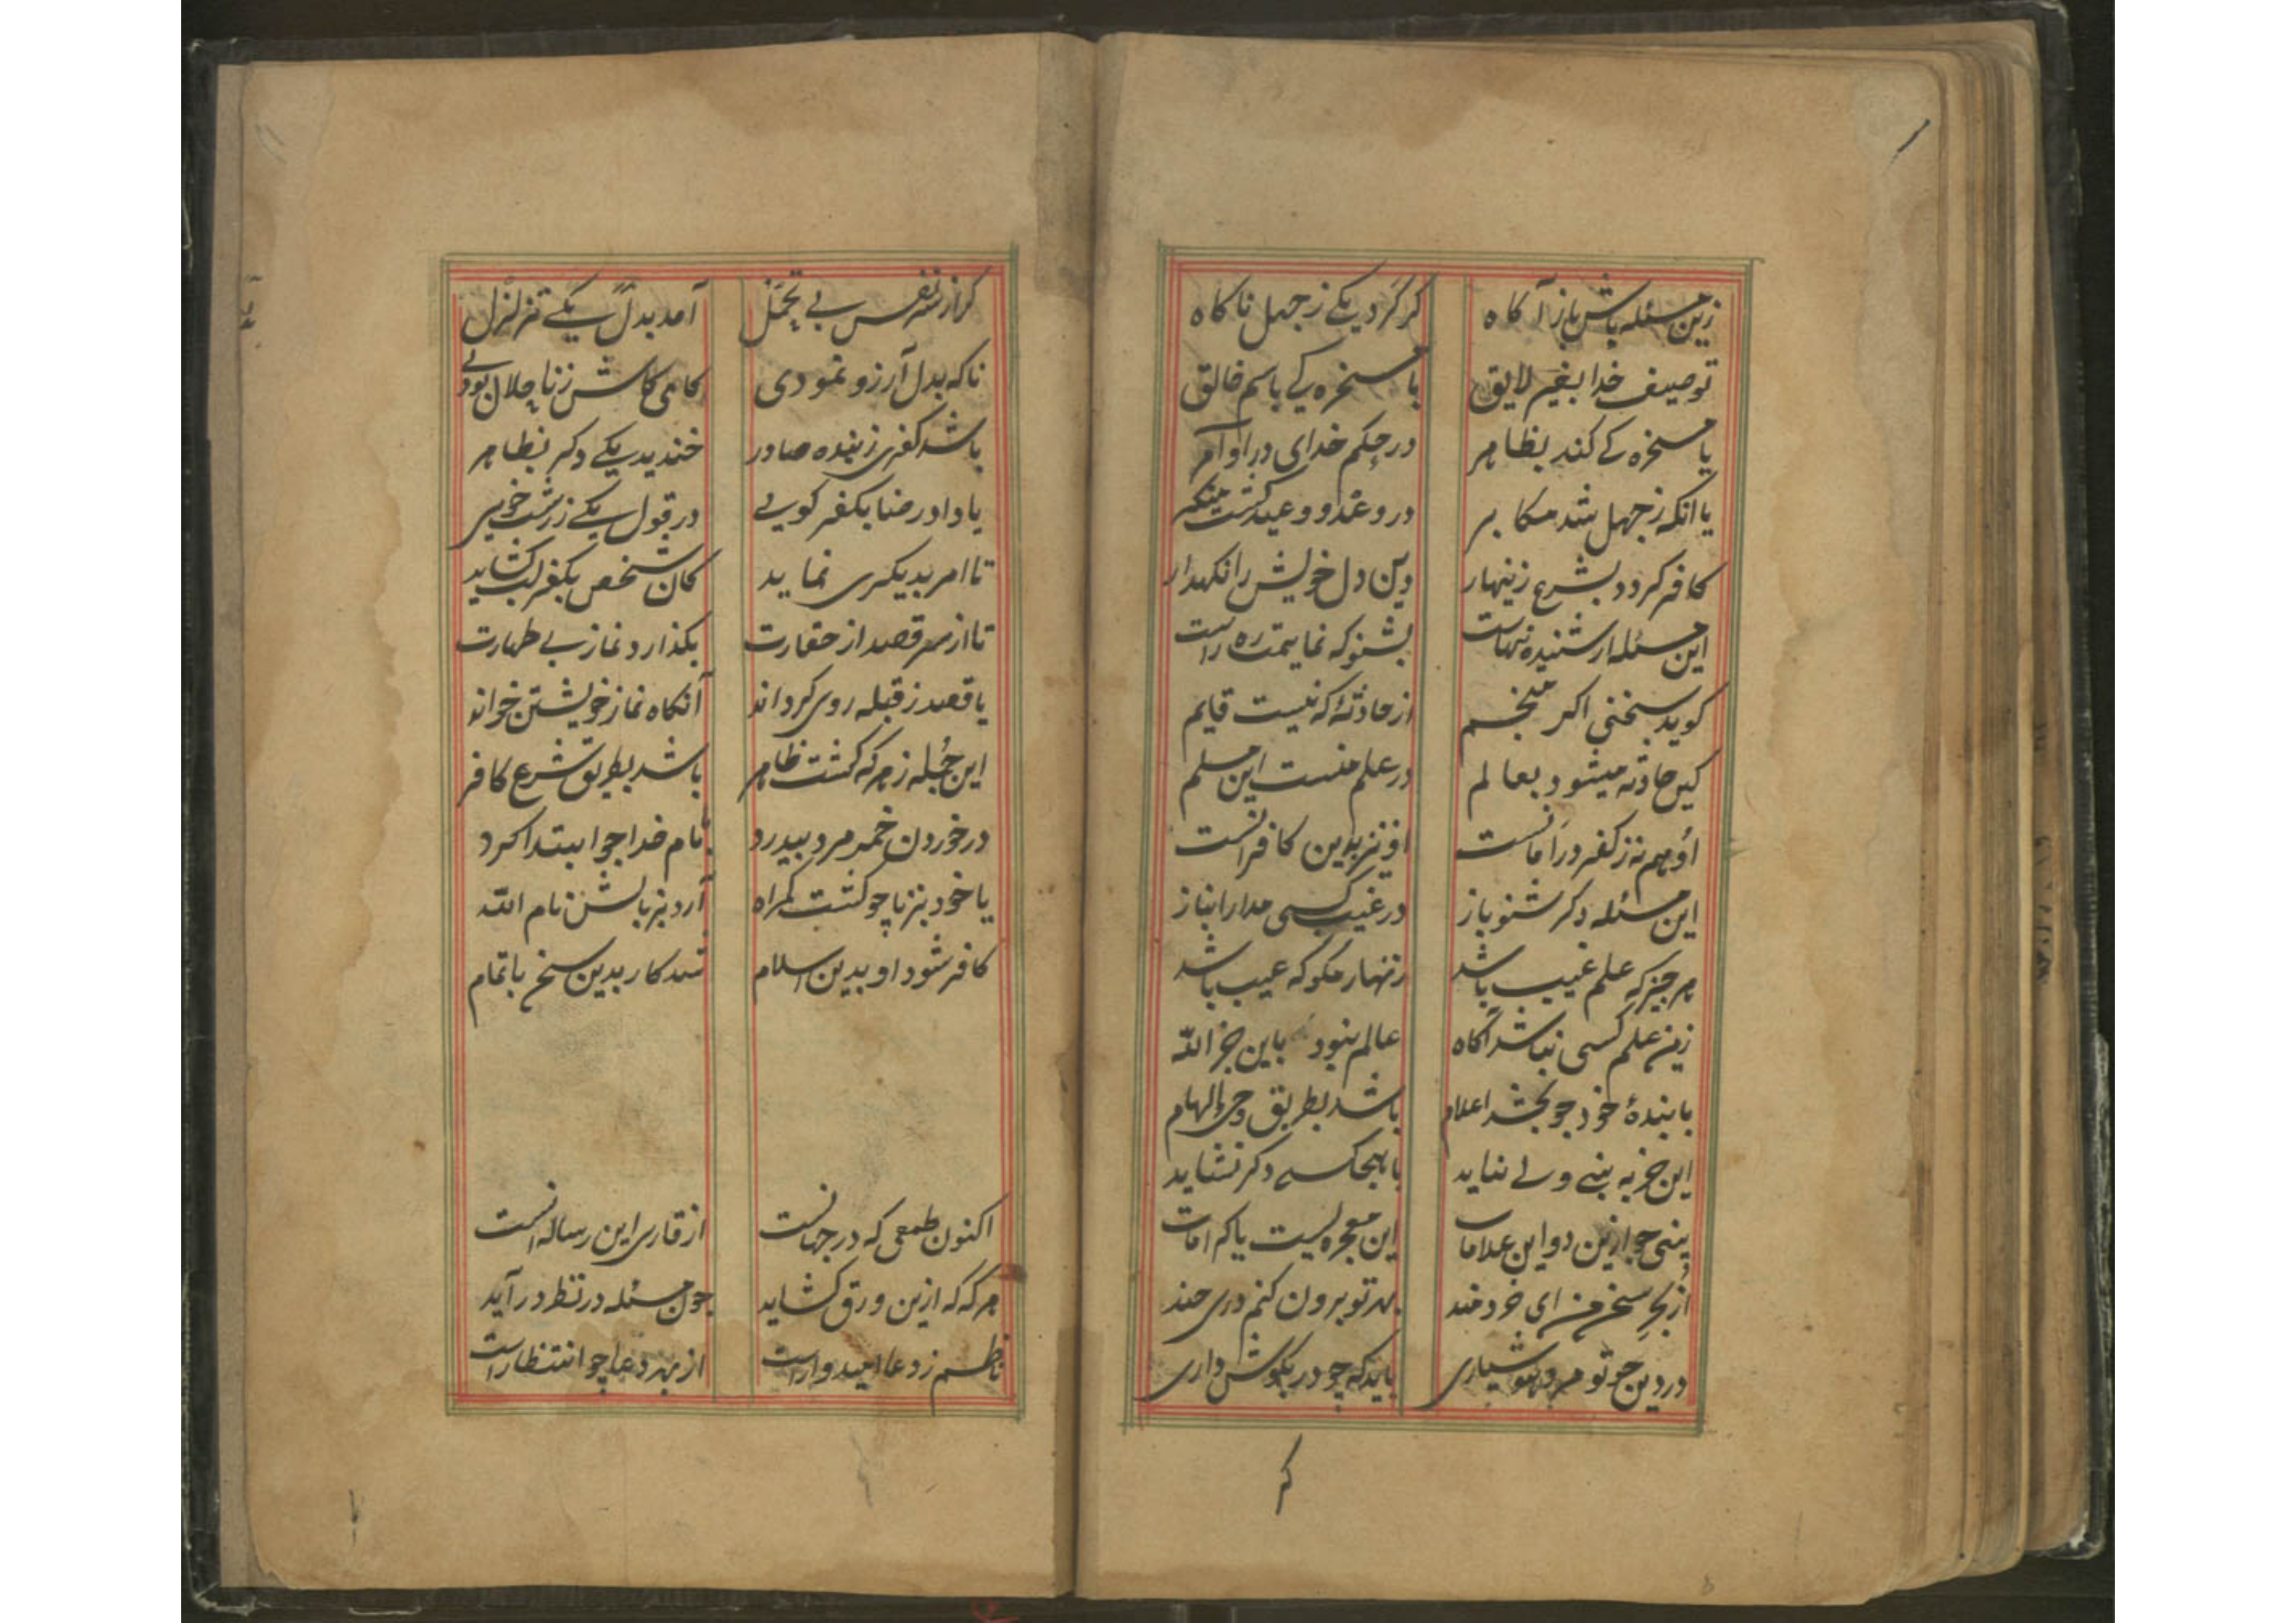 زین مسئله باش باز آکاه کر کرد یکے ز جهل ناکاه
توصیف خدا بغیر لایق یا مسخره کے باسم خالق
یا مسخره کے کند بظاهر در حکم خدای در اوآمر
یا انکه ز جهل شد مکابر در وعد و وعید کشت منکر
کافر کردد بشرع زینهار دین دل خویش را نکهدار
این مسئله ار شنیده نهاست بشنو که نمایمت ره راست
کوید سخنی اکر منجم از حادثهٔ که نیست قایم
کین حادثه میشود بعالم در علم منست این مسلم
او هم نه ز کفر در امانست او نیز بدین کافرانست
این مسئله دکر شنو باز در غیب کسی مدار انباز
هر چیز که علم غیب باشد زنهار مکو که عیب باشد
زین علم کسی نباشد آکاه عالم نبود باین جز الله
با بندهٔ خود چو بخشد اعلام باشد بطریق وحی الهام
این جز به نبی و لے نیاید با هیچکسے دکر نشاید
بینی چو ازین دو این علامات این معجزه ایست یا کرامات
از بحر سخن من ای خردمند بهر تو برون کنم دری چند
در دین چو تو مرد هوشیاری باید که چو در بکوش داری
کر
کر از سر نفس بے تحمل آمد بدل یکے تزلزل
ناکه بدل آرزو نمودی کای کاش زنا حلال بودے
باشد کفری ز بنده صادر خندید یکے دکر بظاهر
یا داد رضا بکفر کویے در قول یکے ز زشت خویی
تا امر بدیکری نماید کان شخص بکفر لب کشاید
تا از سر قصد از حقارت بکذارد نماز بے طهارت
یا قصد ز قبله روی کرداند آنکاه نماز خویشتن خواند
این جمله ز هر که کشت ظاهر باشد بطریق شرع کافر
در خوردن خمر مرد بیدرد با نام خدا چو ابتدا کرد
یا خود بزنا چو کشت کمراه آرد بزبانش نام الله
کافر شود او بدین اسلام شد کار بدین سخن باتمام
اکنون طمعی که در جهانست از قاری این رساله انست
هر که که ازین ورق کشاید چون مسئله در نظر در آید
ناظم ز دعا امیدوار است از بهر دعا چو انتظار است